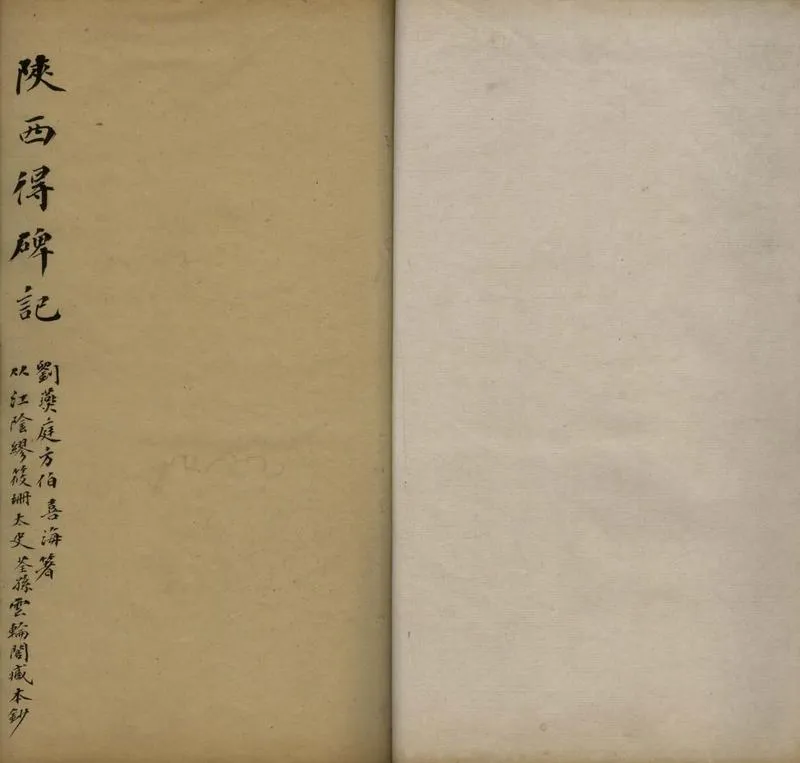 陝西得碑記
劉燕庭方伯喜海箸
从江陰繆筱珊太史荃孫雲輪閣臧本鈔